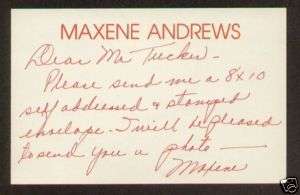 MAXENE ANDREWS
Dear Mr Tucker -
Please send me a 8X10
self addressed & stamped
envelope - I will be pleased
to send you a photo —
Maxene